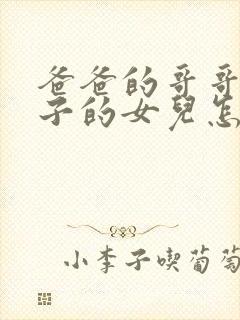 爸爸的哥哥
子的女兒怎
小李子喫葡萄